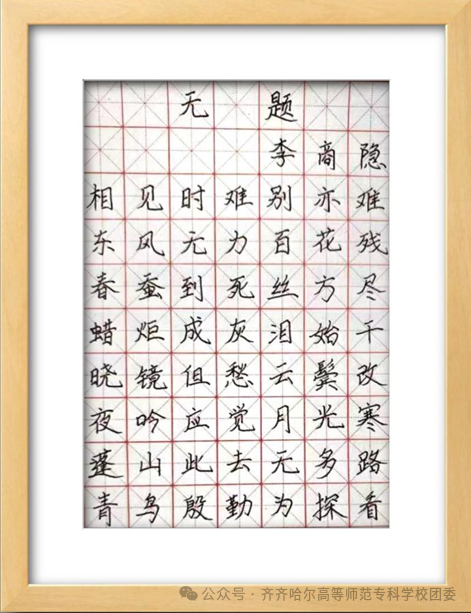 无题
李商隐
相见时难别亦难
东风无力百花残
春蚕到死丝方尽
蜡炬成灰泪始干
晓镜但愁云鬓改
夜吟应觉月光寒
蓬山此去无多路
青鸟殷勤为探看
公众号 · 齐齐哈尔高等师范专科学校团委